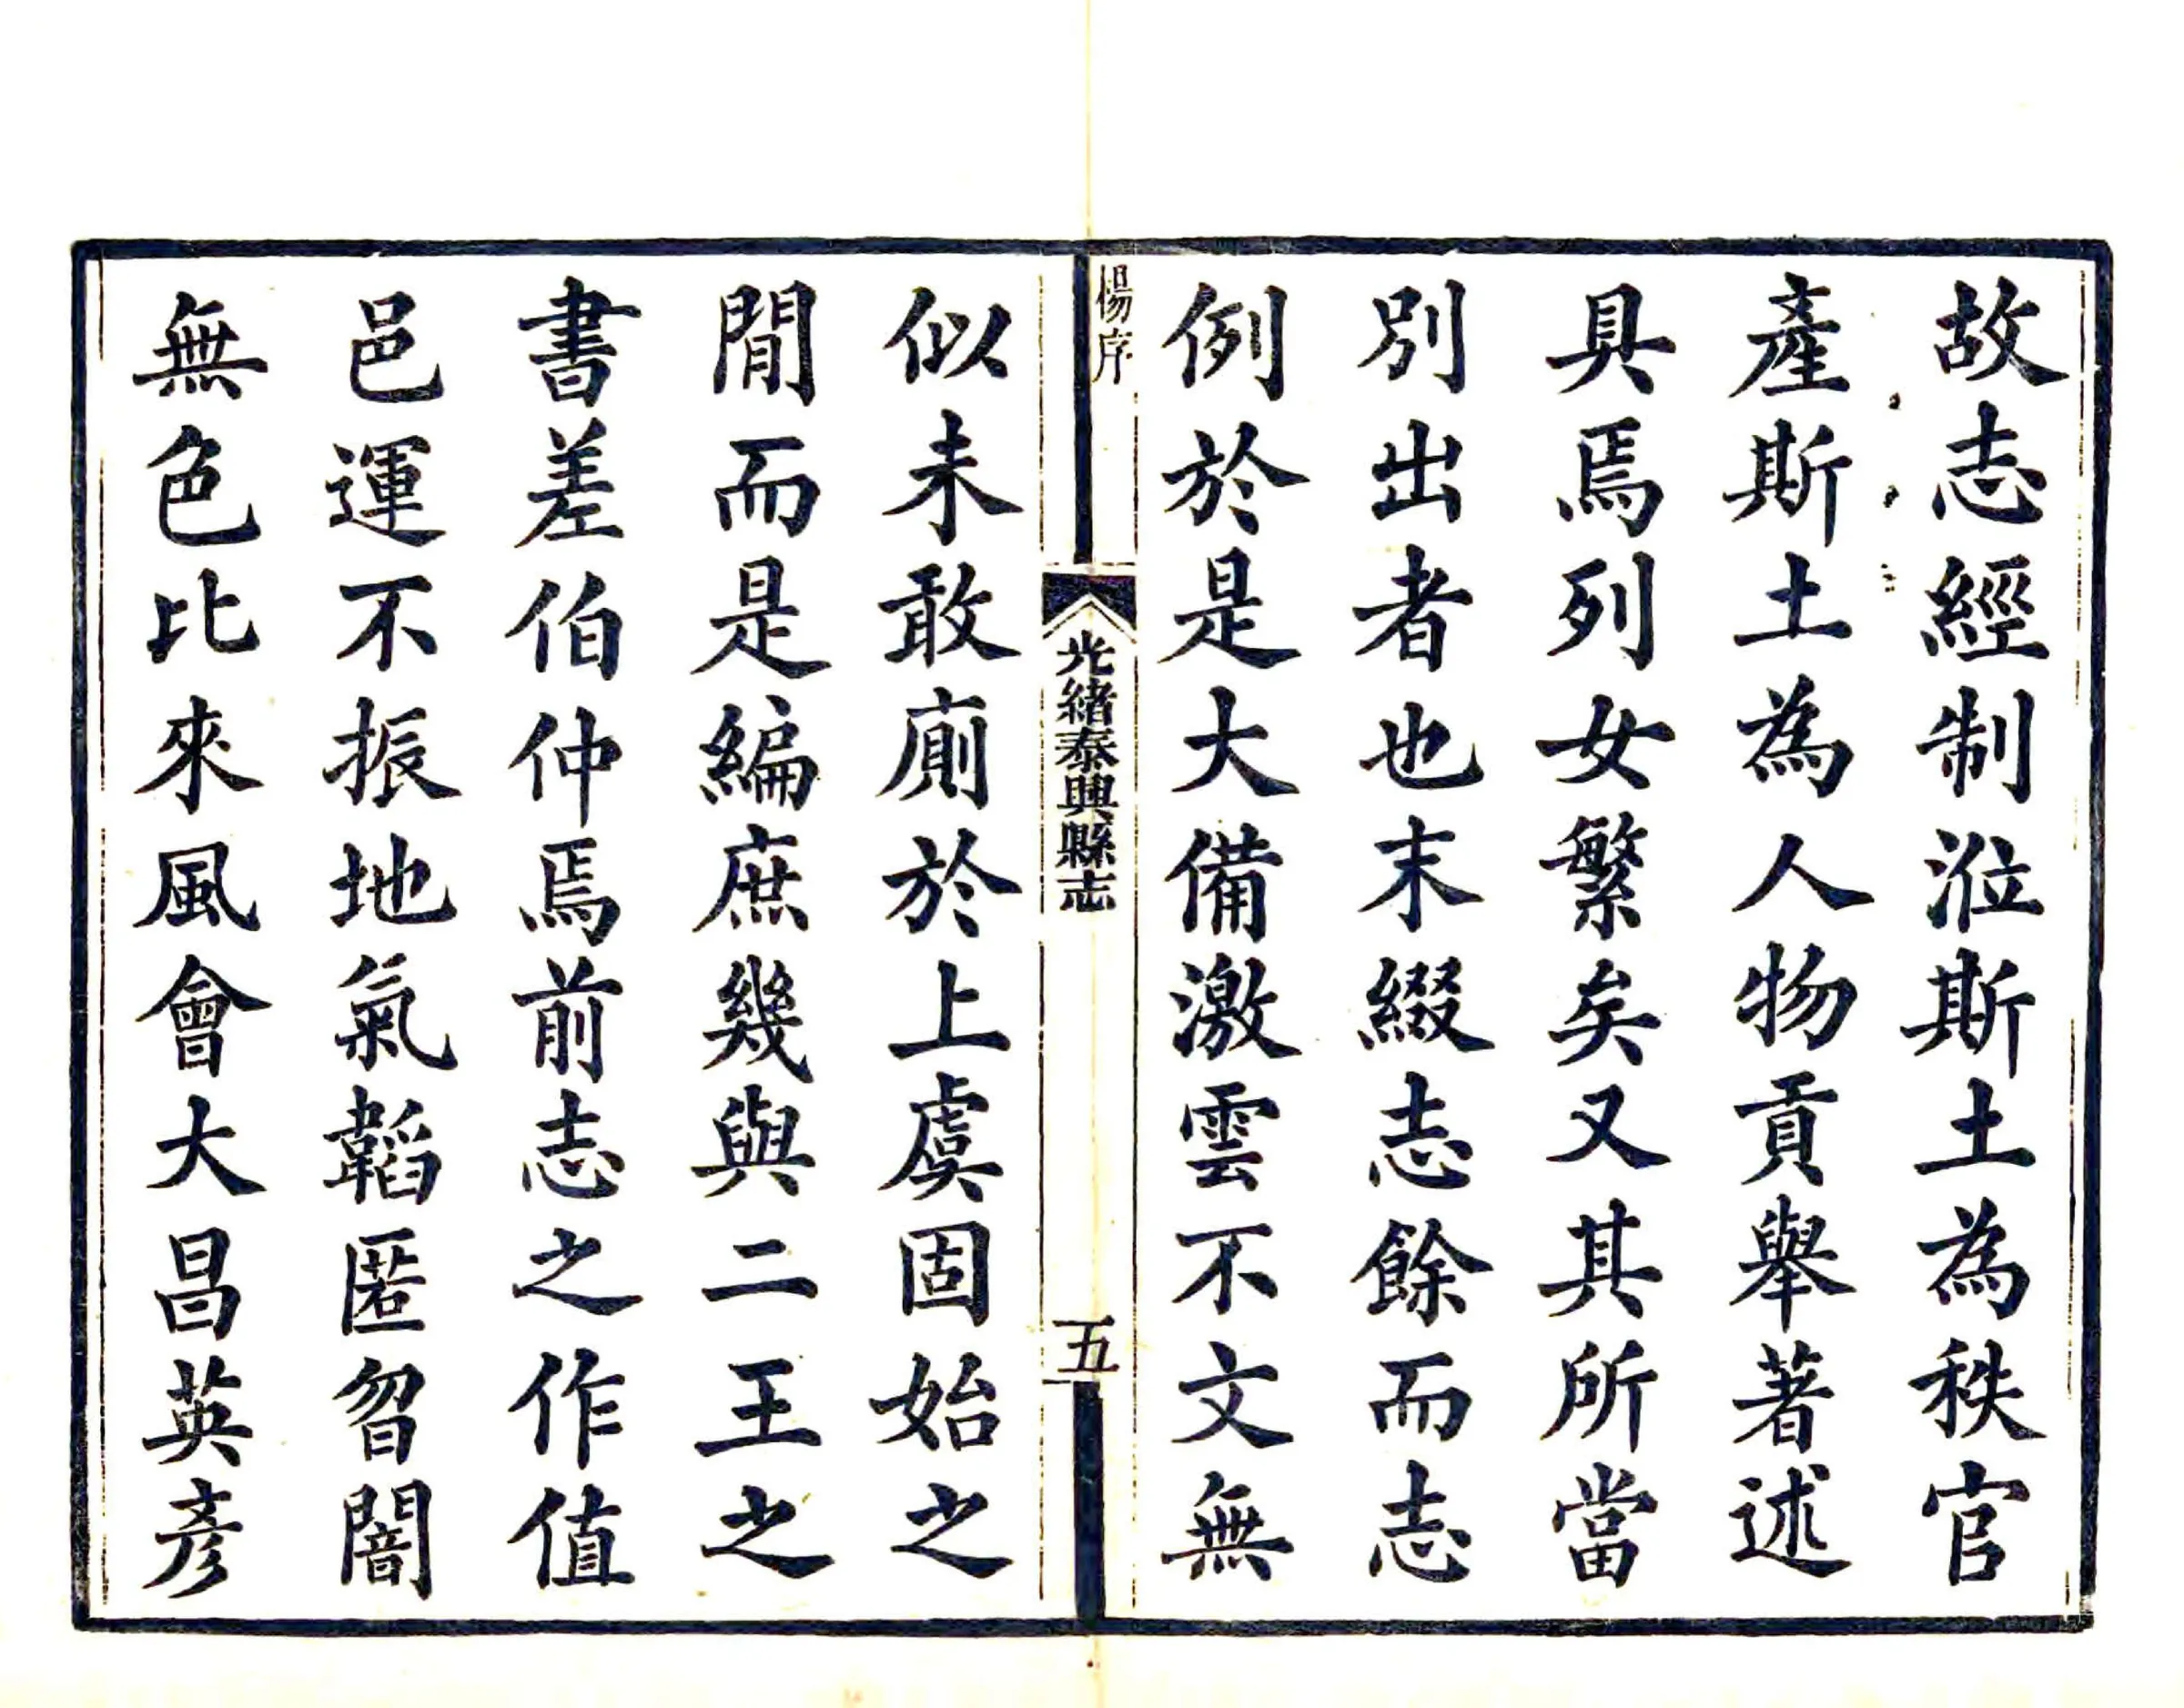 故志經制涖斯土為秩官
產斯土為人物貢舉著述
具焉列女繁矣又其所當
別出者也末綴志餘而志
例於是大備激雲不文無
楊序
光緒泰興縣志
五
似未敢廁於上虞固始之
閒而是編庶幾與二王之
書差伯仲焉前志之作值
邑運不振地氣韜匿曶闇
無色比來風會大昌英彥